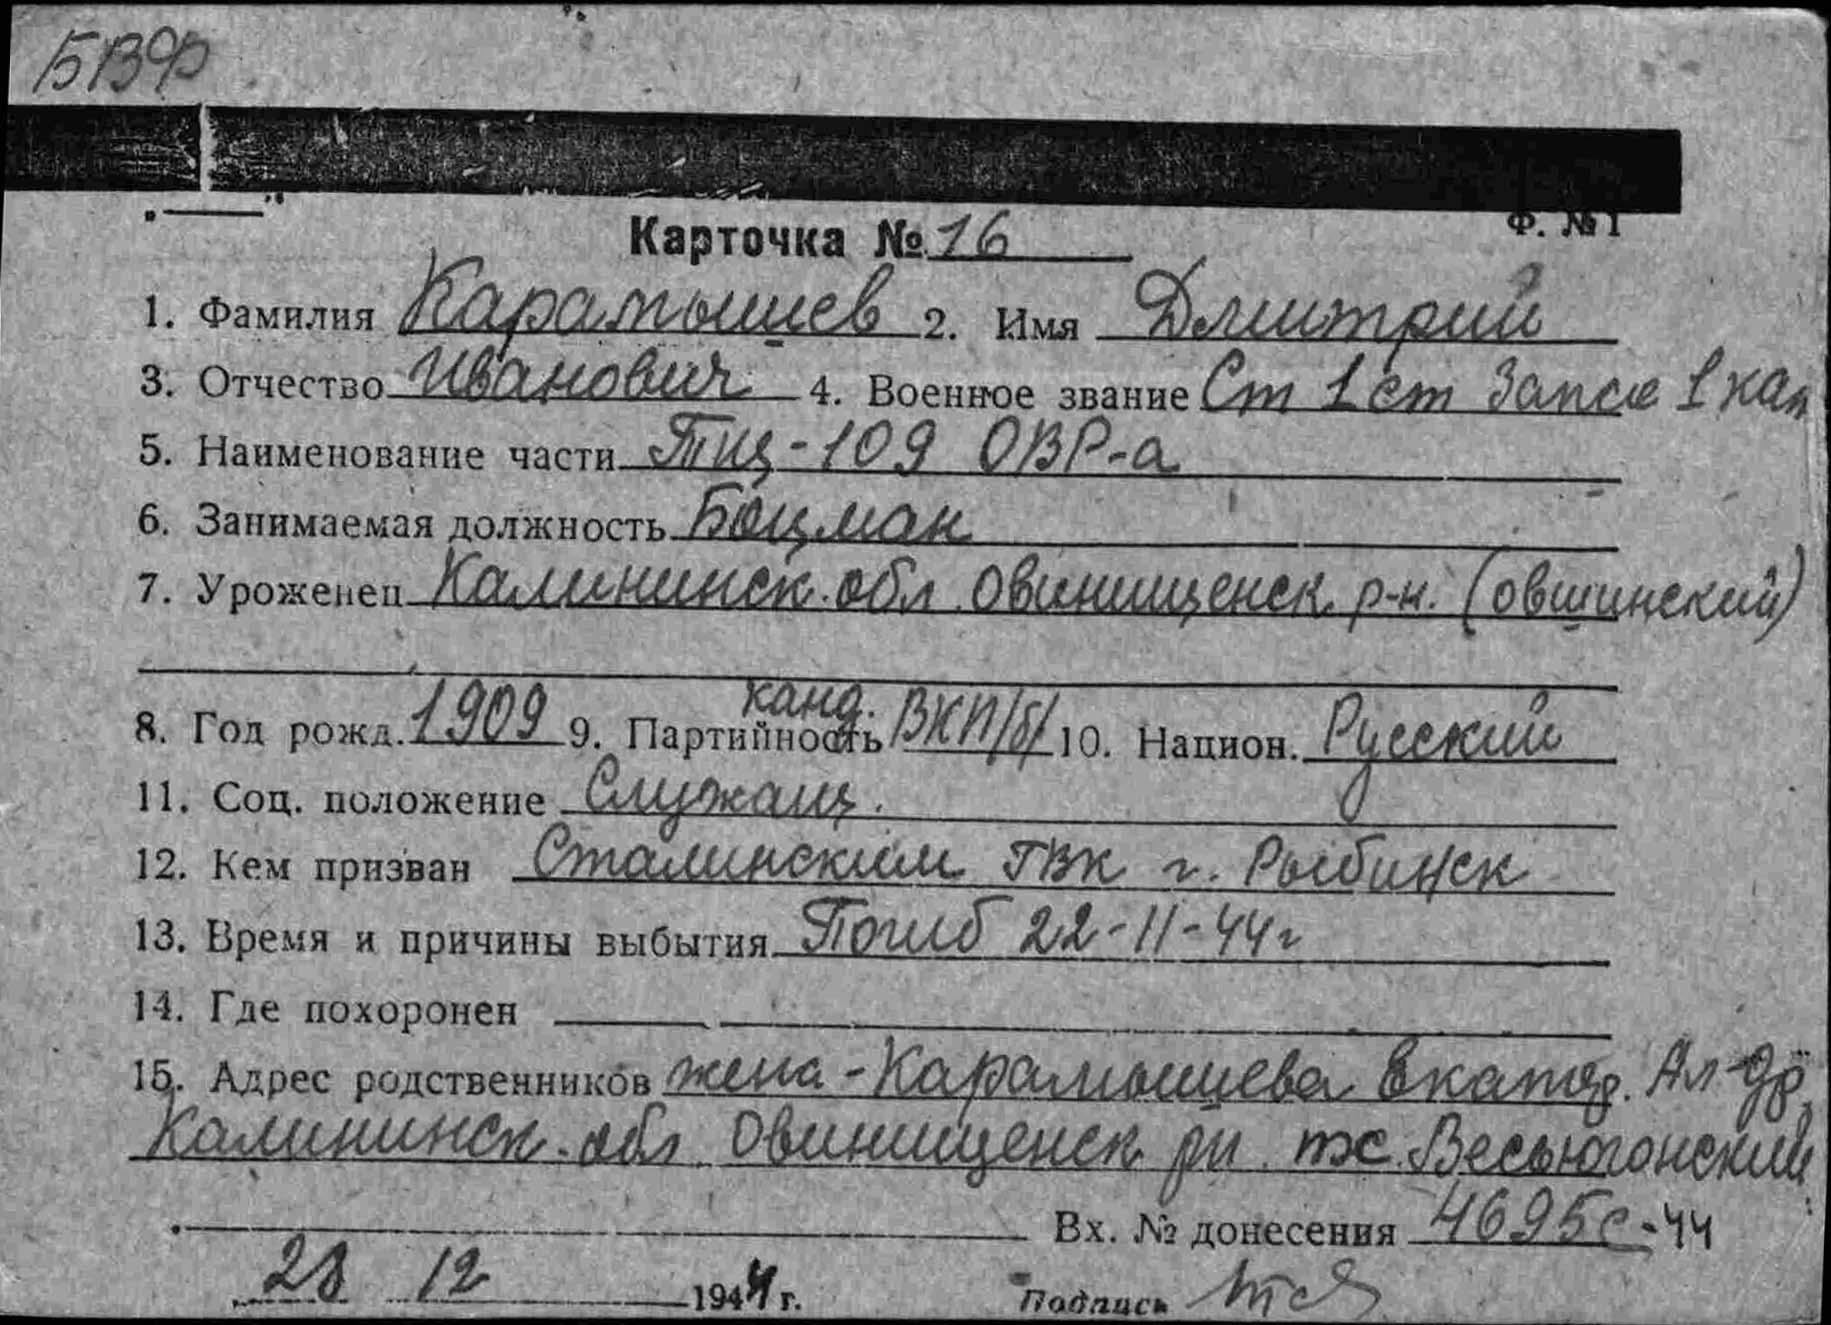 КБФ
Ф. № 1
Карточка № 16
1. Фамилия Карамышев 2. Имя Дмитрий
3. Отчество Иванович 4. Военное звание Ст 1 ст запса 1 кат
5. Наименование части ТЩ-109 ОВР-а
6. Занимаемая должность Боцман
7. Уроженец Калининск. обл Овинищенск. р-н. (Овшинский)
8. Год рожд. 1909 9. Партийность канд. ВКП/б/ 10. Национ. Русский
11. Соц. положение Служащ.
12. Кем призван Сталинским ГВК г. Рыбинск
13. Время и причины выбытия Погиб 22-11-44г
14. Где похоронен
15. Адрес родственников жена - Карамышева Екатер. Ал-др
Калининск. обл Овинищенск рн тс. Весьюгонский
Вх. № донесения 4695с-44
28 12 1944 г. Подпись